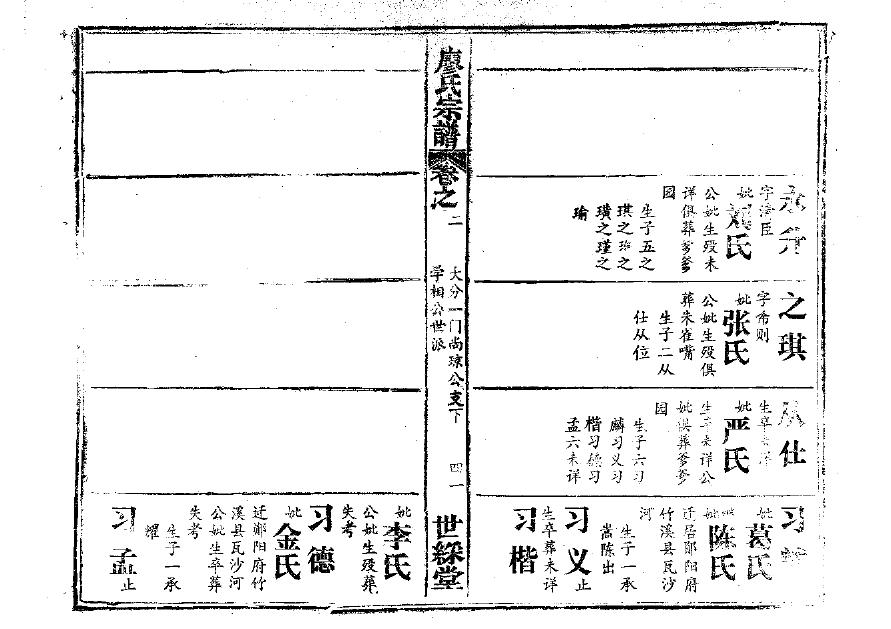 永分
字济臣
妣刘氏
公妣生殁未
详俱葬爹爹
园
生子五之
琪之珍之
璜之瑾之
瑜
之琪
字希则
妣张氏
公妣生殁俱
葬朱崔嘴
生子二从
仕从位
从仕
生卒未详
妣严氏
生卒未详公
妣俱葬爹爹
园
生子六习
麟习义习
楷习德习
孟六未详
习
妣葛氏
妣陈氏
迁居郧阳府
竹溪县瓦沙
河
生子一承
嵩陈出
习义止
生卒葬未详
习楷
廖氏宗谱
卷之二
大分一门尚琼公支下
学相公世派
四一
世綵堂
妣李氏
公妣生殁葬
失考
习德
妣金氏
迁郧阳府竹
溪县瓦沙河
公妣生卒葬
失考
生子一承
耀
习孟止